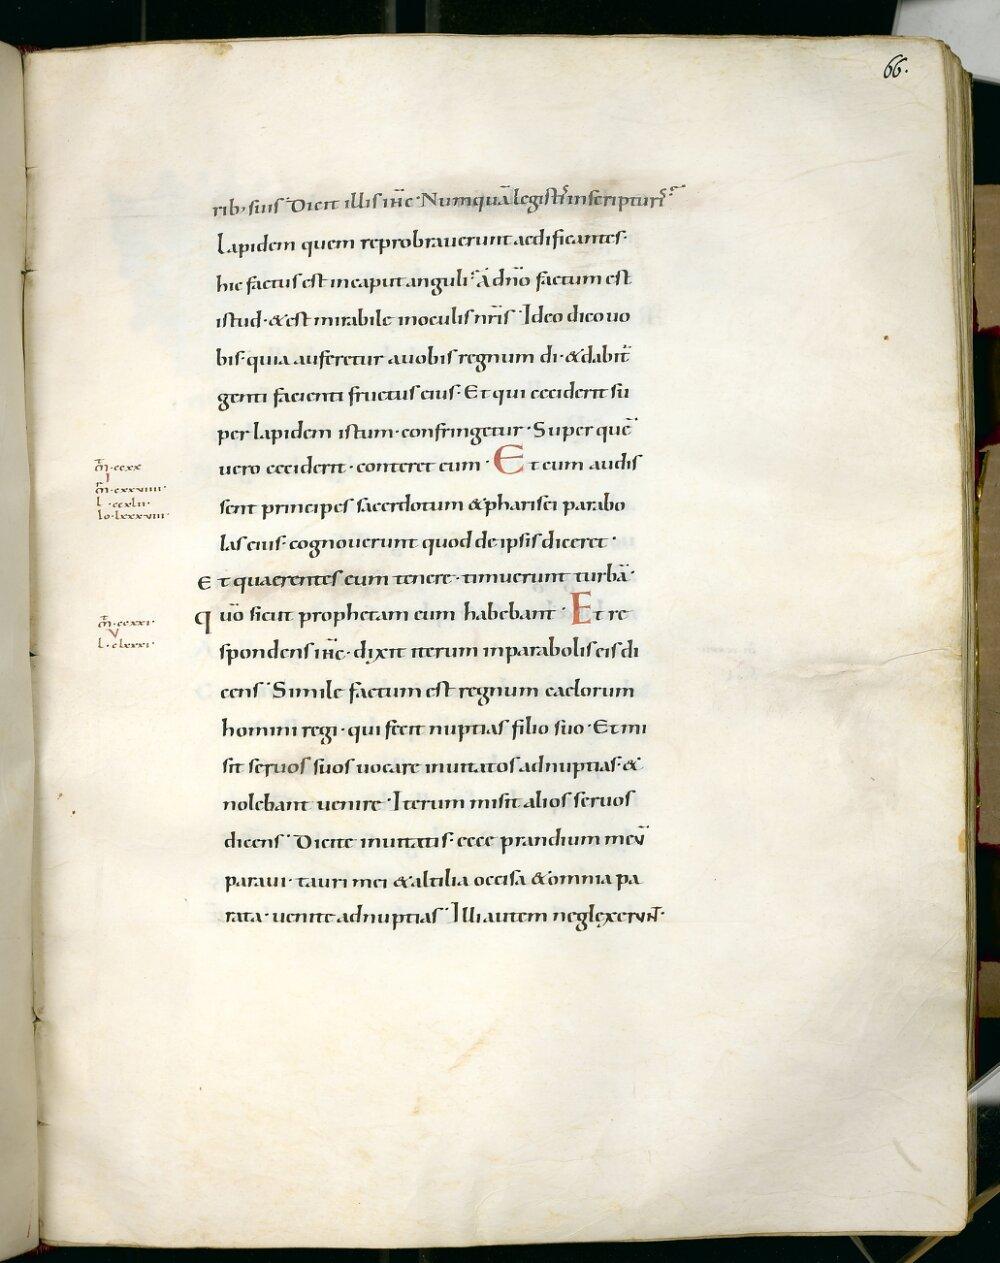 66.
rib; suis · Dicit illis ihc · Numquā legistis in scripturis ·
Lapidem quem reprobraverunt aedificantes ·
hic factus est in caput anguli · A dn̄o factum est
istud · & est mirabile in oculis nr̄is · Ideo dico uo
bis · quia auferetur a uobis regnum di · & dabit̄
genti facienti fructus eius · Et qui ceciderit su
per lapidem istum · confringetur · Super quē
uero ceciderit · conteret eum · Et cum audis
m̄ · ccxx
I
m̄r · cxxviiii ·
l · ccxlii ·
Io · lxxxviii ·
sent principes sacerdotum & pharisei parabo
las eius · cognouerunt quod de ipsis diceret ·
Et quaerentes eum tenere · timuerunt turbā ·
quō sicut prophetam eum habebant · Et re
m̄ · ccxxi ·
V
l · clxxxi ·
spondens ihc · dixit iterum in parabolis eis di
cens · Simile factum est regnum caelorum
homini regi · qui fecit nuptias filio suo · Et mi
sit seruos suos uocare inuitatos ad nuptias · &
nolebant uenire · Iterum misit alios seruos
dicens · Dicite inuitatis · ecce prandium meū
paraui · tauri mei & altilia occisa & omnia pa
rata · uenite ad nuptias · Illi autem neglexerunt ·